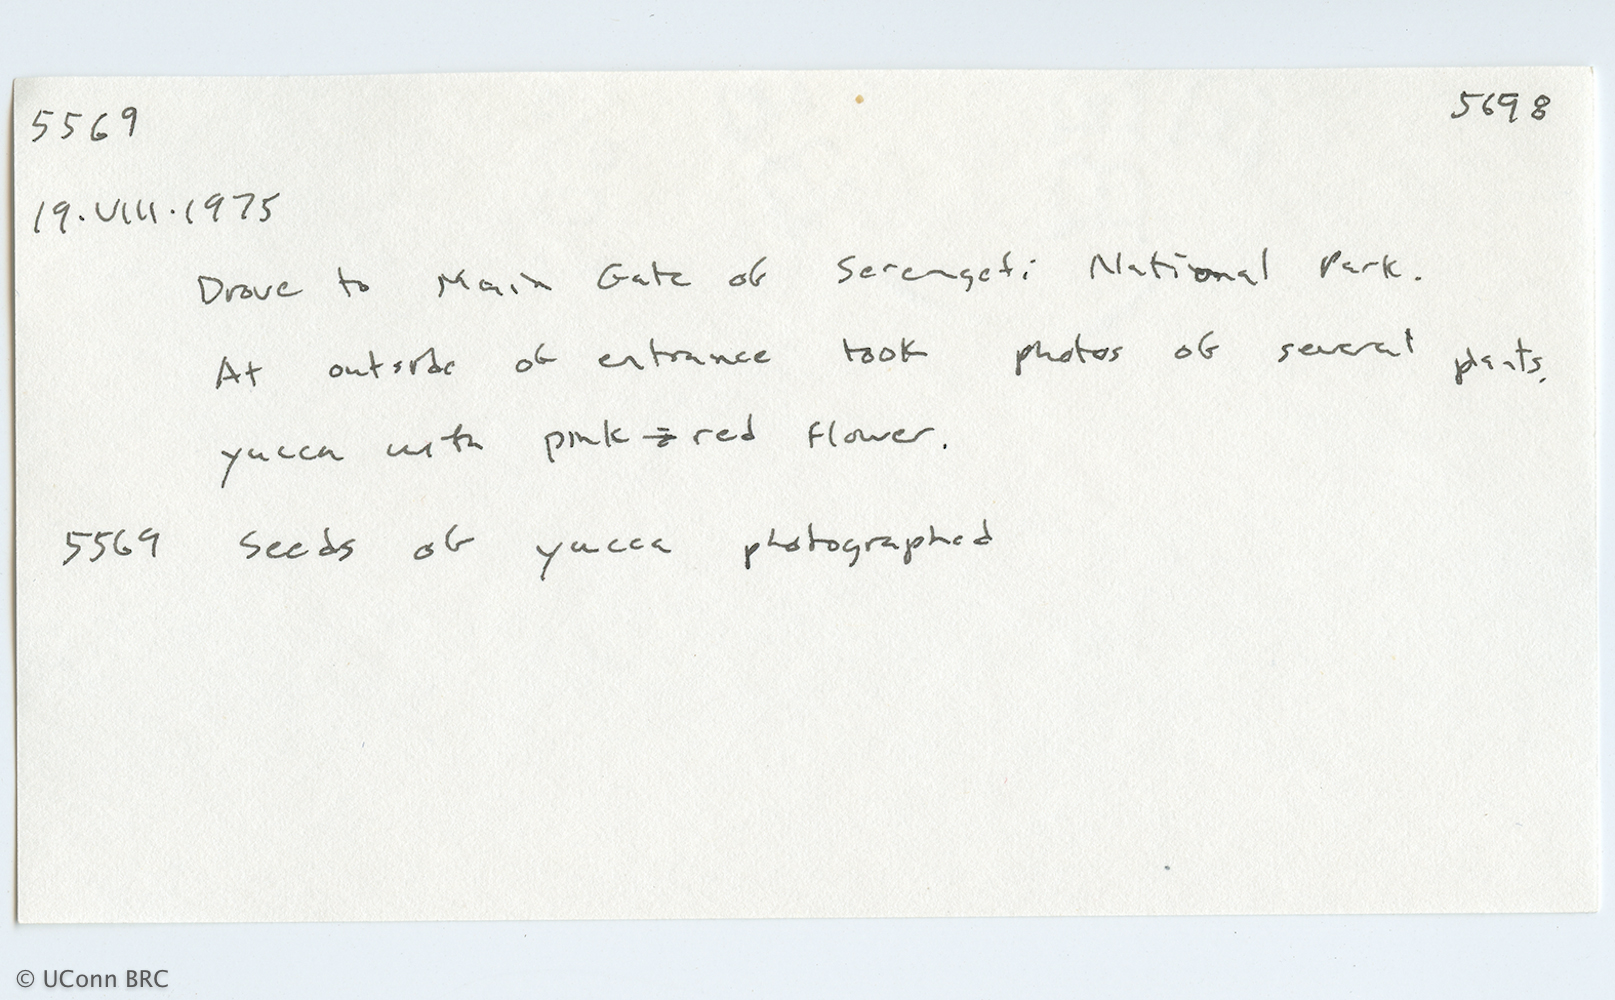 5569 5698
19.VIII.1975
Drove to Main Gate of Serengeti National Park.
At outside of entrance took photos of several plants.
yucca with pink - red flower.
5569 Seeds of yucca photographed
© UConn BRC